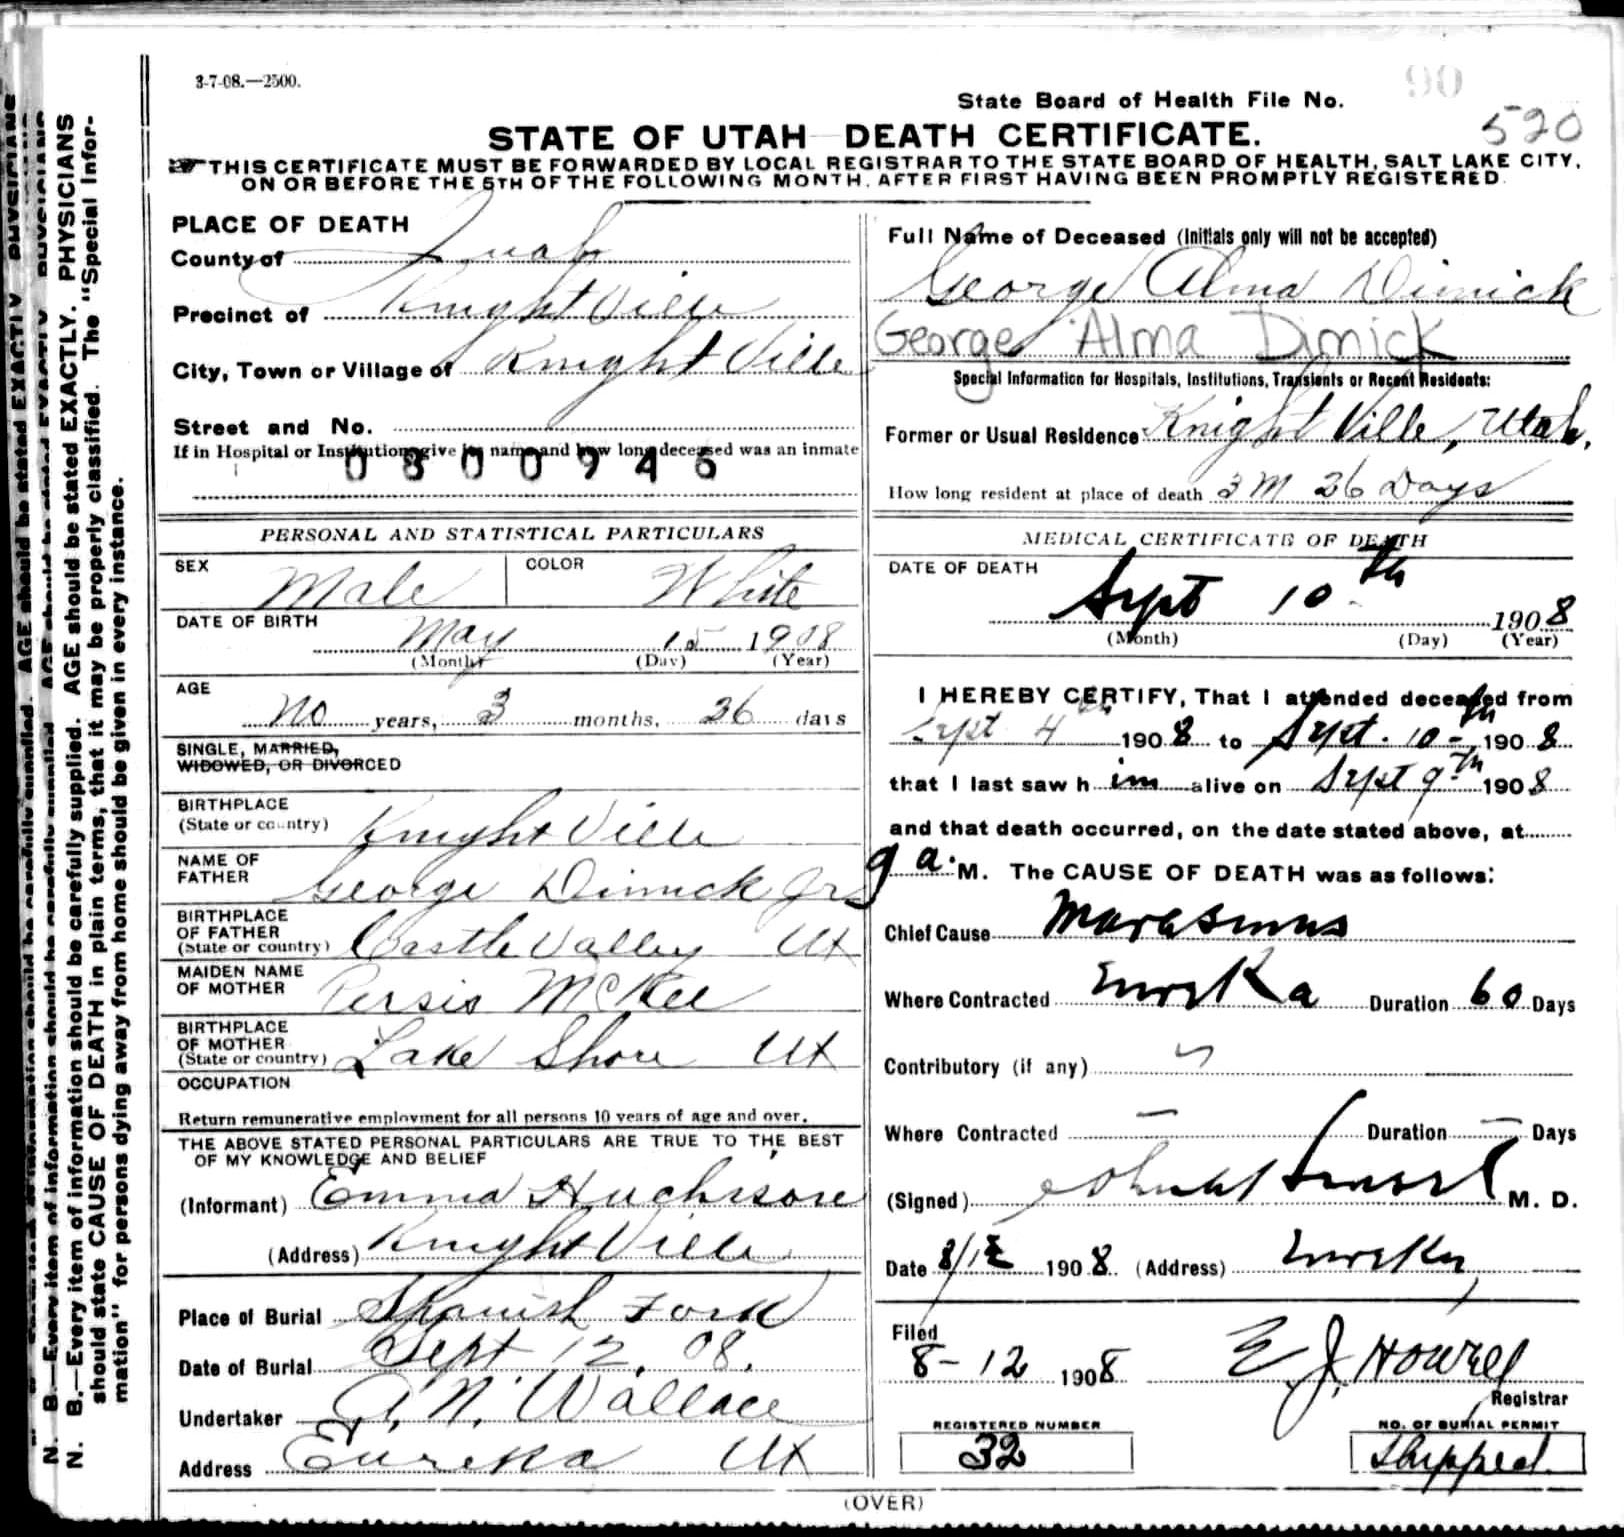 3-7-08.—2500.
90
State Board of Health File No.
520
STATE OF UTAH DEATH CERTIFICATE.
THIS CERTIFICATE MUST BE FORWARDED BY LOCAL REGISTRAR TO THE STATE BOARD OF HEALTH, SALT LAKE CITY,
ON OR BEFORE THE 5TH OF THE FOLLOWING MONTH, AFTER FIRST HAVING BEEN PROMPTLY REGISTERED.
PLACE OF DEATH
County of Juab
Precinct of Knight Ville
City, Town or Village of Knight Ville
Street and No.
If in Hospital or Institution, give its name and how long deceased was an inmate
0800946
Full Name of Deceased (Initials only will not be accepted)
George Alma Dimick
George Alma Dimick
Special Information for Hospitals, Institutions, Transients or Recent Residents:
Former or Usual Residence Knight Ville, Utah.
How long resident at place of death 3 M 26 Days
PERSONAL AND STATISTICAL PARTICULARS
SEX Male
COLOR White
DATE OF BIRTH May 15 1908
(Month) (Day) (Year)
AGE
No years, 3 months, 26 days
SINGLE, MARRIED,
WIDOWED, OR DIVORCED
BIRTHPLACE
(State or country) Knight Ville
NAME OF
FATHER George Dimick Jr
BIRTHPLACE
OF FATHER
(State or country) Castle Valley Ut
MAIDEN NAME
OF MOTHER Persis McKee
BIRTHPLACE
OF MOTHER
(State or country) Lake Shore Ut
OCCUPATION
Return remunerative employment for all persons 10 years of age and over.
THE ABOVE STATED PERSONAL PARTICULARS ARE TRUE TO THE BEST
OF MY KNOWLEDGE AND BELIEF
(Informant) Emma Huchisone
(Address) Knight Ville
Place of Burial Spanish Fork
Date of Burial Sept 12, 08.
Undertaker A. N. Wallace
Address Eureka Ut
MEDICAL CERTIFICATE OF DEATH
DATE OF DEATH
Sept 10th 1908
(Month) (Day) (Year)
I HEREBY CERTIFY, That I attended deceased from
Sept 4th 1908 to Sept. 10th 1908
that I last saw him alive on Sept 9th 1908
and that death occurred, on the date stated above, at
9 a. M. The CAUSE OF DEATH was as follows:
Chief Cause Marasmus
Where Contracted Eureka Duration 60 Days
Contributory (if any)
Where Contracted — Duration — Days
(Signed) M. D.
Date 8/12 1908 (Address) Eureka
Filed
8-12 1908 E J. Howell
Registrar
REGISTERED NUMBER
32
NO. OF BURIAL PERMIT
Shipped.
(OVER)
N. B.—Every item of information should be carefully supplied. AGE should be stated EXACTLY. PHYSICIANS
should state CAUSE OF DEATH in plain terms, that it may be properly classified. The "Special Infor-
mation" for persons dying away from home should be given in every instance.